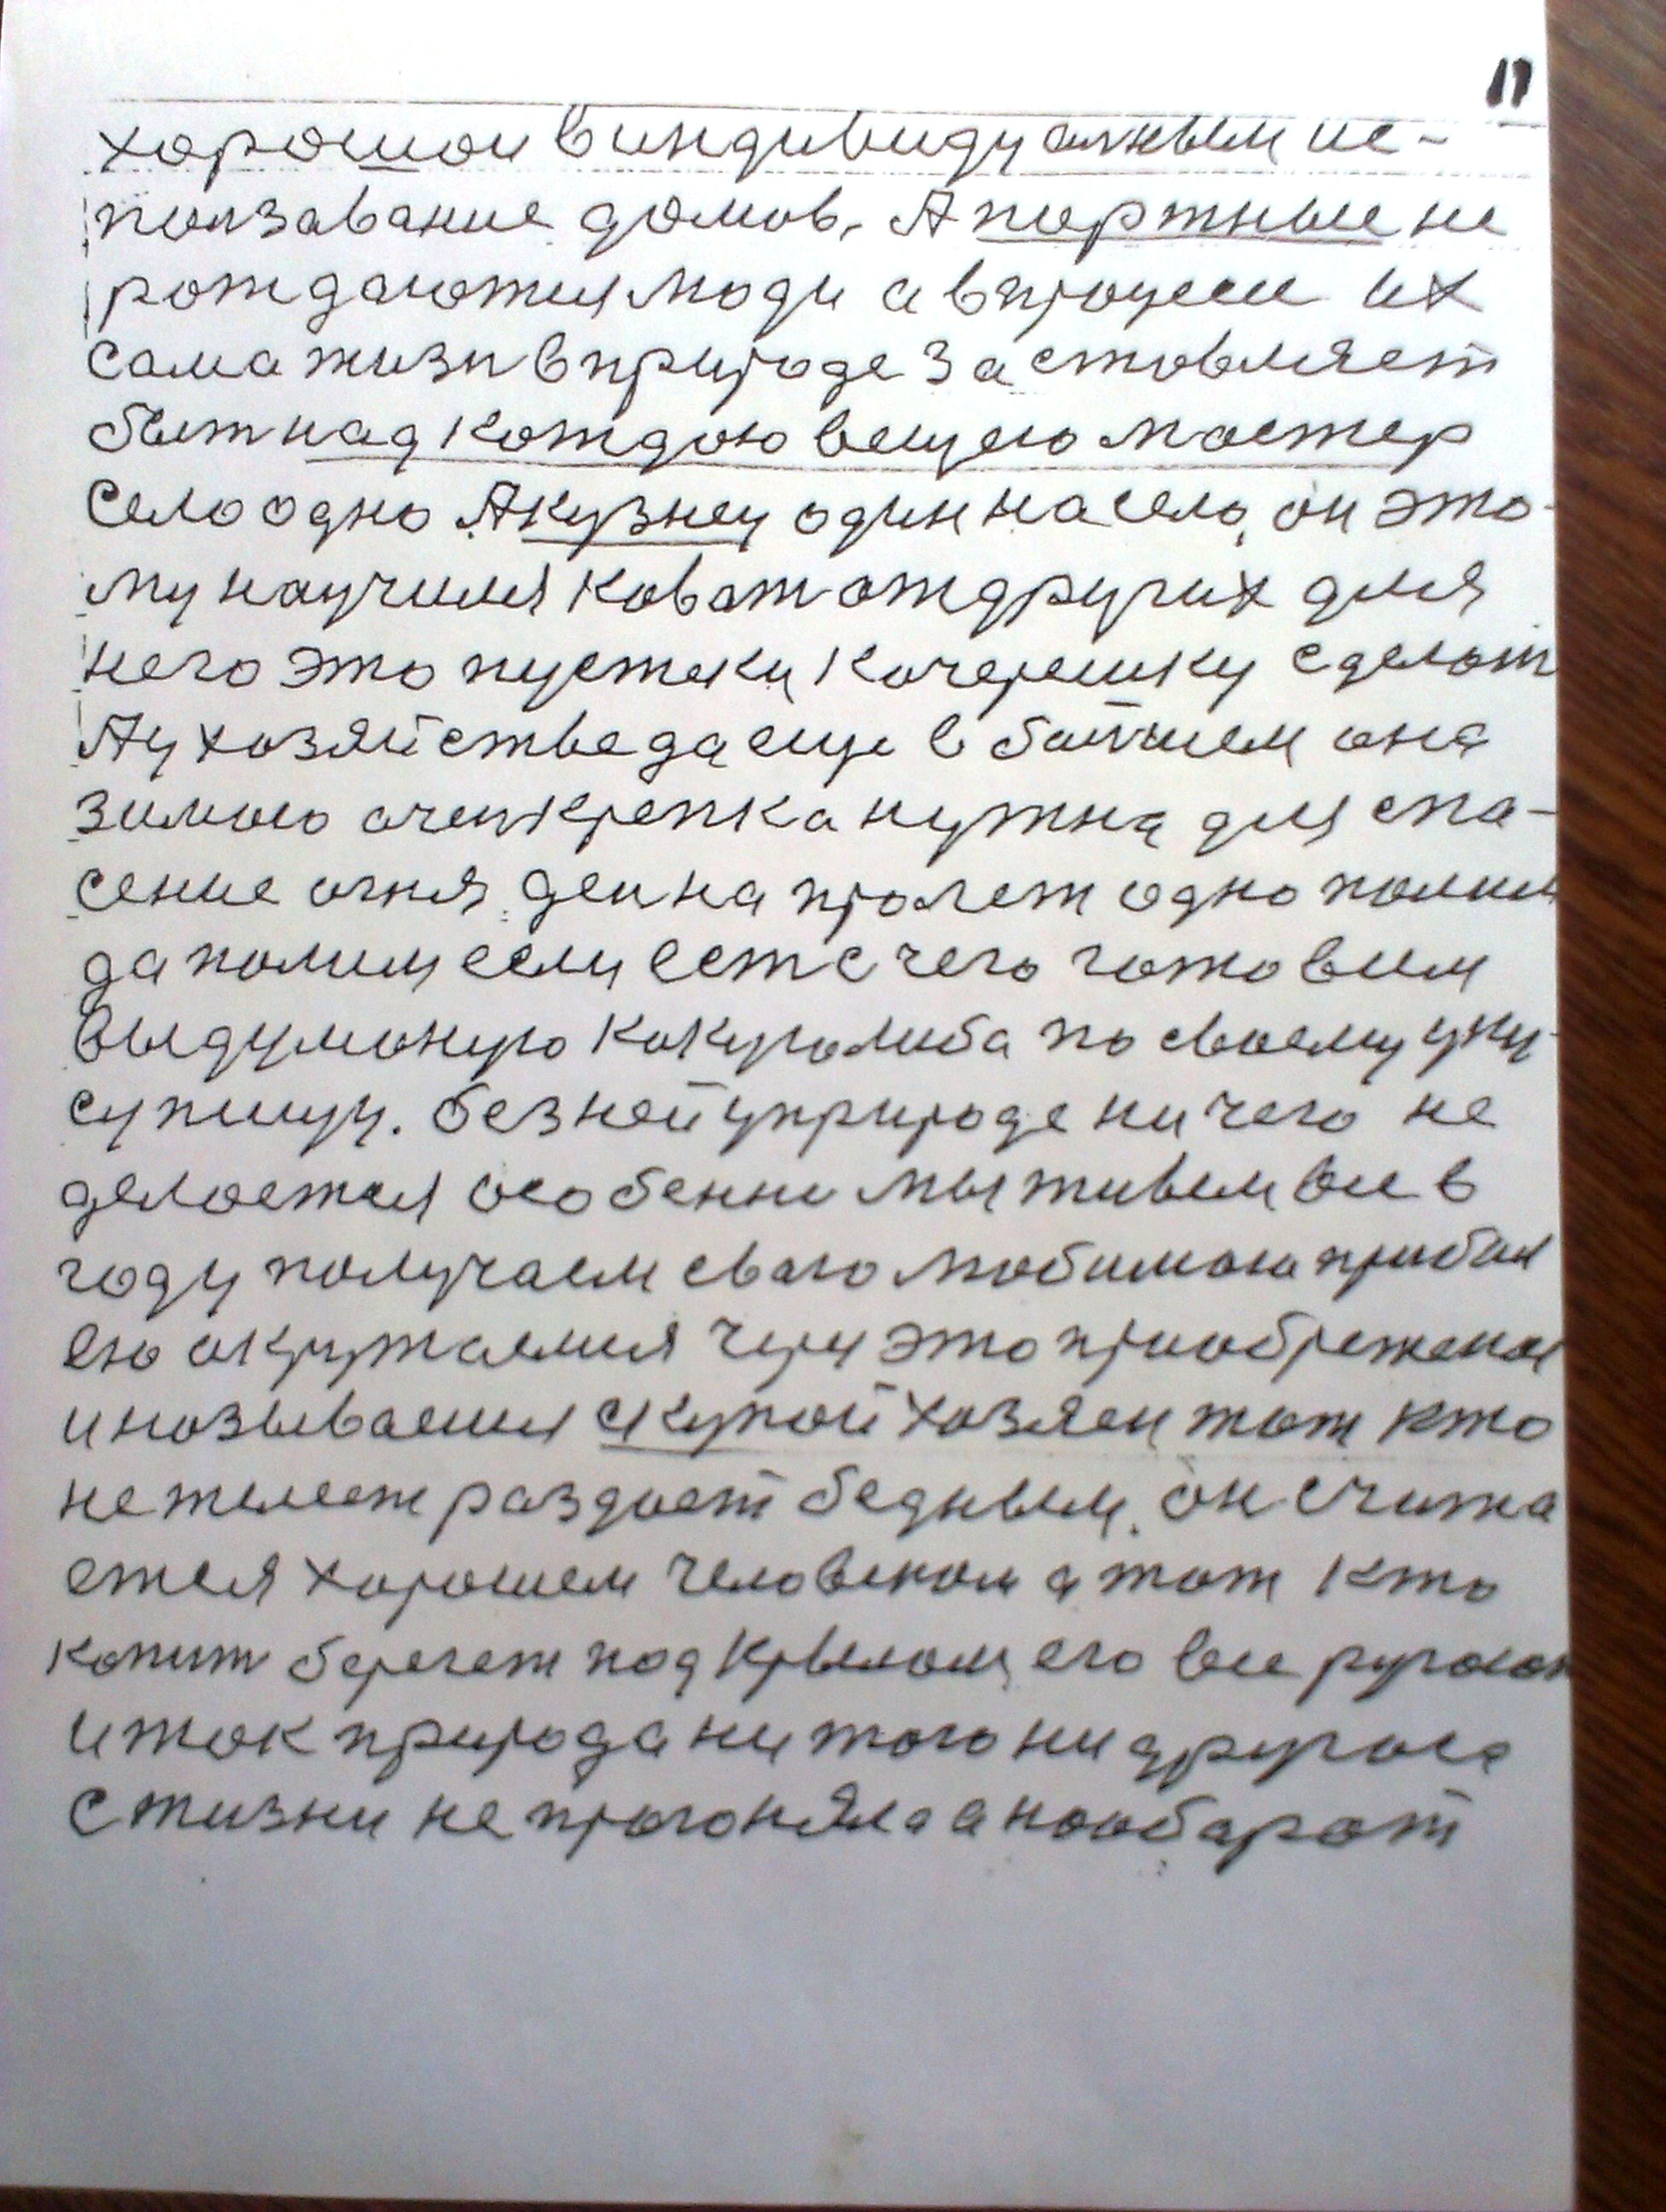 11
хорошои в индивидуалным ис-
ползавание домов. А портные не
рождаются люди а впроцесе их
сама жизн вприроде заставляет
быт над каждою вещею мастер
село одно А кузнец один на село, он это-
му научился коват от других для
него это пустяки качерешку сделат
А у хозяйстве да еще в бывшем она
зимою очен крепка нужна для спа-
сение огня. ден на пролет одно полим
да полим если ест с чего готовим
выдуманую какую либа по своему уку-
су пищу. без ней уприроде ни чего не
делается особенни мы живем все в
году получаем сваю любимою прибыл
ею окружаемся через это приобретения
и называемся скупой хозяен тот кто
не жалеет раздает бедным. он счита
ется хорошем человеком а тот кто
копит бережет под крылом, его все ругают
и так природа ни того ни другога
с жизни не прогоняла а нооборот